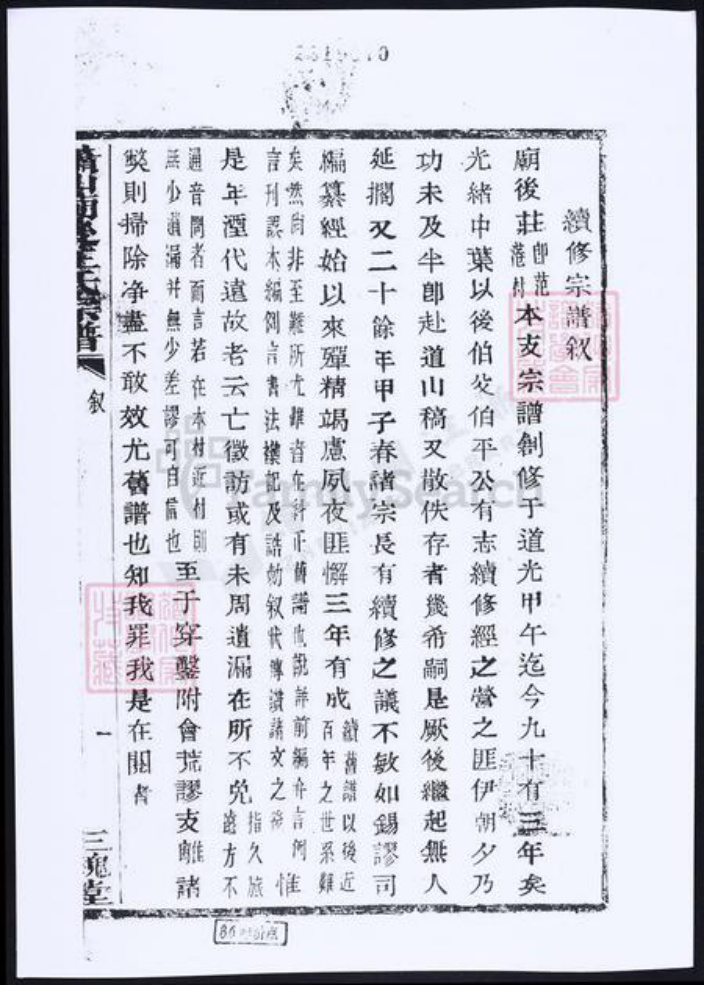 續修宗譜敘
廟後莊即范港村本支宗譜創修于道光甲午迄今九十有三年矣
光緒中葉以後伯父伯平公有志續修經之營之匪伊朝夕乃
功未及半即赴道山稿又散佚存者幾希嗣是厥後繼起無人
延擱又二十餘年甲子春諸宗長有續修之議不敏如錫謬司
編纂經始以來殫精竭慮夙夜匪懈三年有成續舊譜以後近百年之世系難
矣然尚非至難所尤難者在糾正舊譜也說詳前編弁言例惟
言刊誤本編例言書法襍記及誥勅敘狀傳讚諸文之後惟
是年湮代遠故老云亡徵訪或有未周遺漏在所不免指久旅遠方不
通音問者而言若在本村近村則
無少遺漏并無少差謬可自信也至于穿鑿附會荒謬支離諸
獘則掃除净盡不敢效尤舊譜也知我罪我是在閱者
敘
一
三槐堂
FamilySearch